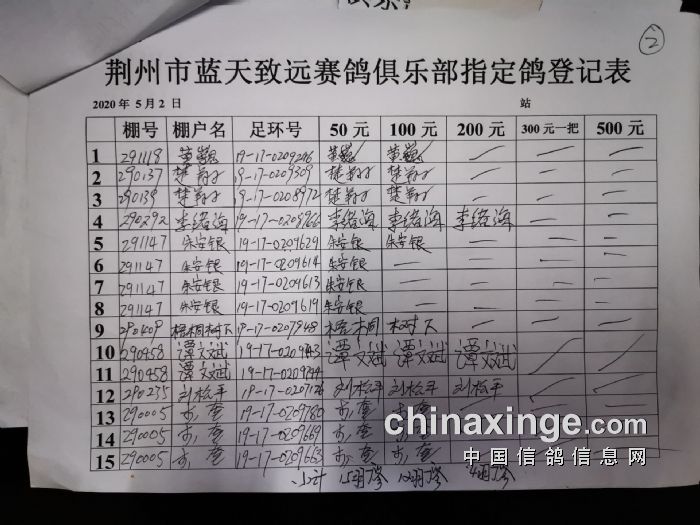 2
荆州市蓝天致远赛鸽俱乐部指定鸽登记表
2020 年 5 月 2 日 站
棚号 棚户名 足环号 50 元 100 元 200 元 300 元一把 500 元
1 291118 董巍 19-17-0209246 董巍 董巍 — — —
2 290137 楚翔子 19-17-0209309 楚翔子 楚翔子 — — —
3 290139 楚翔子 19-17-0208972 楚翔子 楚翔子 — — —
4 290292 李绪海 19-17-0209766 李绪海 李绪海 李绪海 — —
5 291147 朱安银 19-17-0209629 朱安银 朱安银 — — —
6 291147 朱安银 19-17-0209614 朱安银 — — — —
7 291147 朱安银 19-17-0209613 朱安银 — — — —
8 291147 朱安银 19-17-0209619 朱安银 — — — —
9 290409 梧桐树下 19-17-0207948 梧桐 树下 — — —
10 290458 谭文斌 19-17-0209743 谭文斌 谭文斌 谭文斌
11 290458 谭文斌
12 290235 刘松平 19-17-0207126 刘松平 刘松平 刘松平 — —
13 290005 19-17-0209780
14 290005 19-17-0209669
15 290005 19-17-0209663
小计 15羽 12羽 4羽
chinaxinge.com
中国信鸽信息网